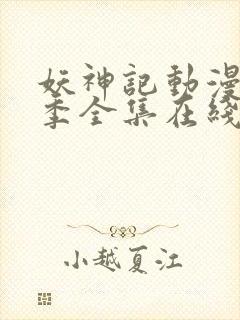 妖神記動漫
季全集在綫
小越夏江